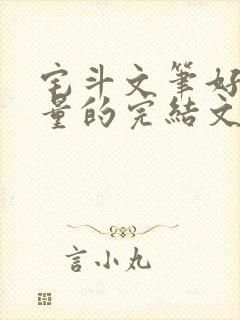 宅斗文筆好
量的完結文
言小丸